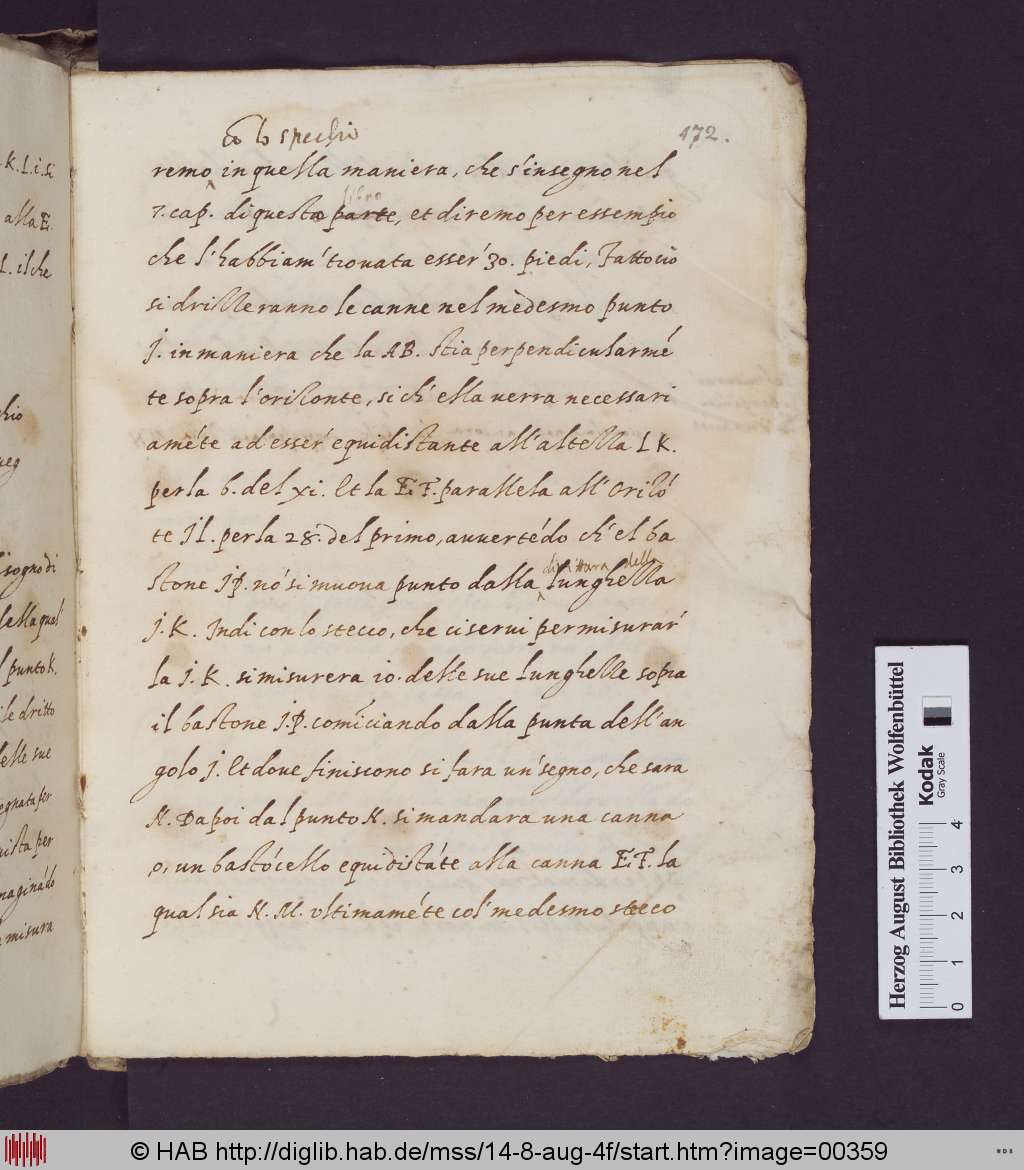 cō lo specchio
172.
remo in quella maniera, che s'insegno nel
libro
7. cap. di questo parte, et diremo per essempio
che l'habbiam' trouata esser' 30. piedi, Fatto ciò
si drizzeranno le canne nel medesmo punto
J. in maniera che la AB. stia perpendicularmē
te sopra l'orizonte, si ch' ella uerra necessari
amēte ad esser' equidistante all'altezza L K.
per la 6. del xi. Et la E.F. parallela all' orizō
te J L. per la 28. del primo, auuertēdo ch' el ba
dirittura della
stone J P. nō si muoua punto dalla lunghezza
J. K. Indi con lo stecco, che ci serui per misurar'
la J. K. si misurera 10. delle sue lunghezze sopra
il bastone J. P. comīciando dalla punta dell'an
golo J. Et doue finiscono si fara un' segno, che sara
N. Dapoi dal punto N. si mandara una canna
o, un bastōcello equidistāte alla canna E.F. la
qual sia N. M. vltimamēte col' medesmo stecco
K. L. i. si
alla E.
L. il che
chio
ueg
isogno di
della qual'
l punto K.
ile dritto
delle sue
egnata per
uista per
maginādo
misura
Herzog August Bibliothek Wolfenbüttel
Kodak
Gray Scale
0 1 2 3 4
© HAB http://diglib.hab.de/mss/14-8-aug-4f/start.htm?image=00359